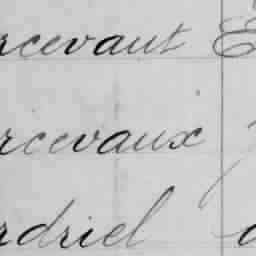 rcevaut E
rcevaux
rdriel